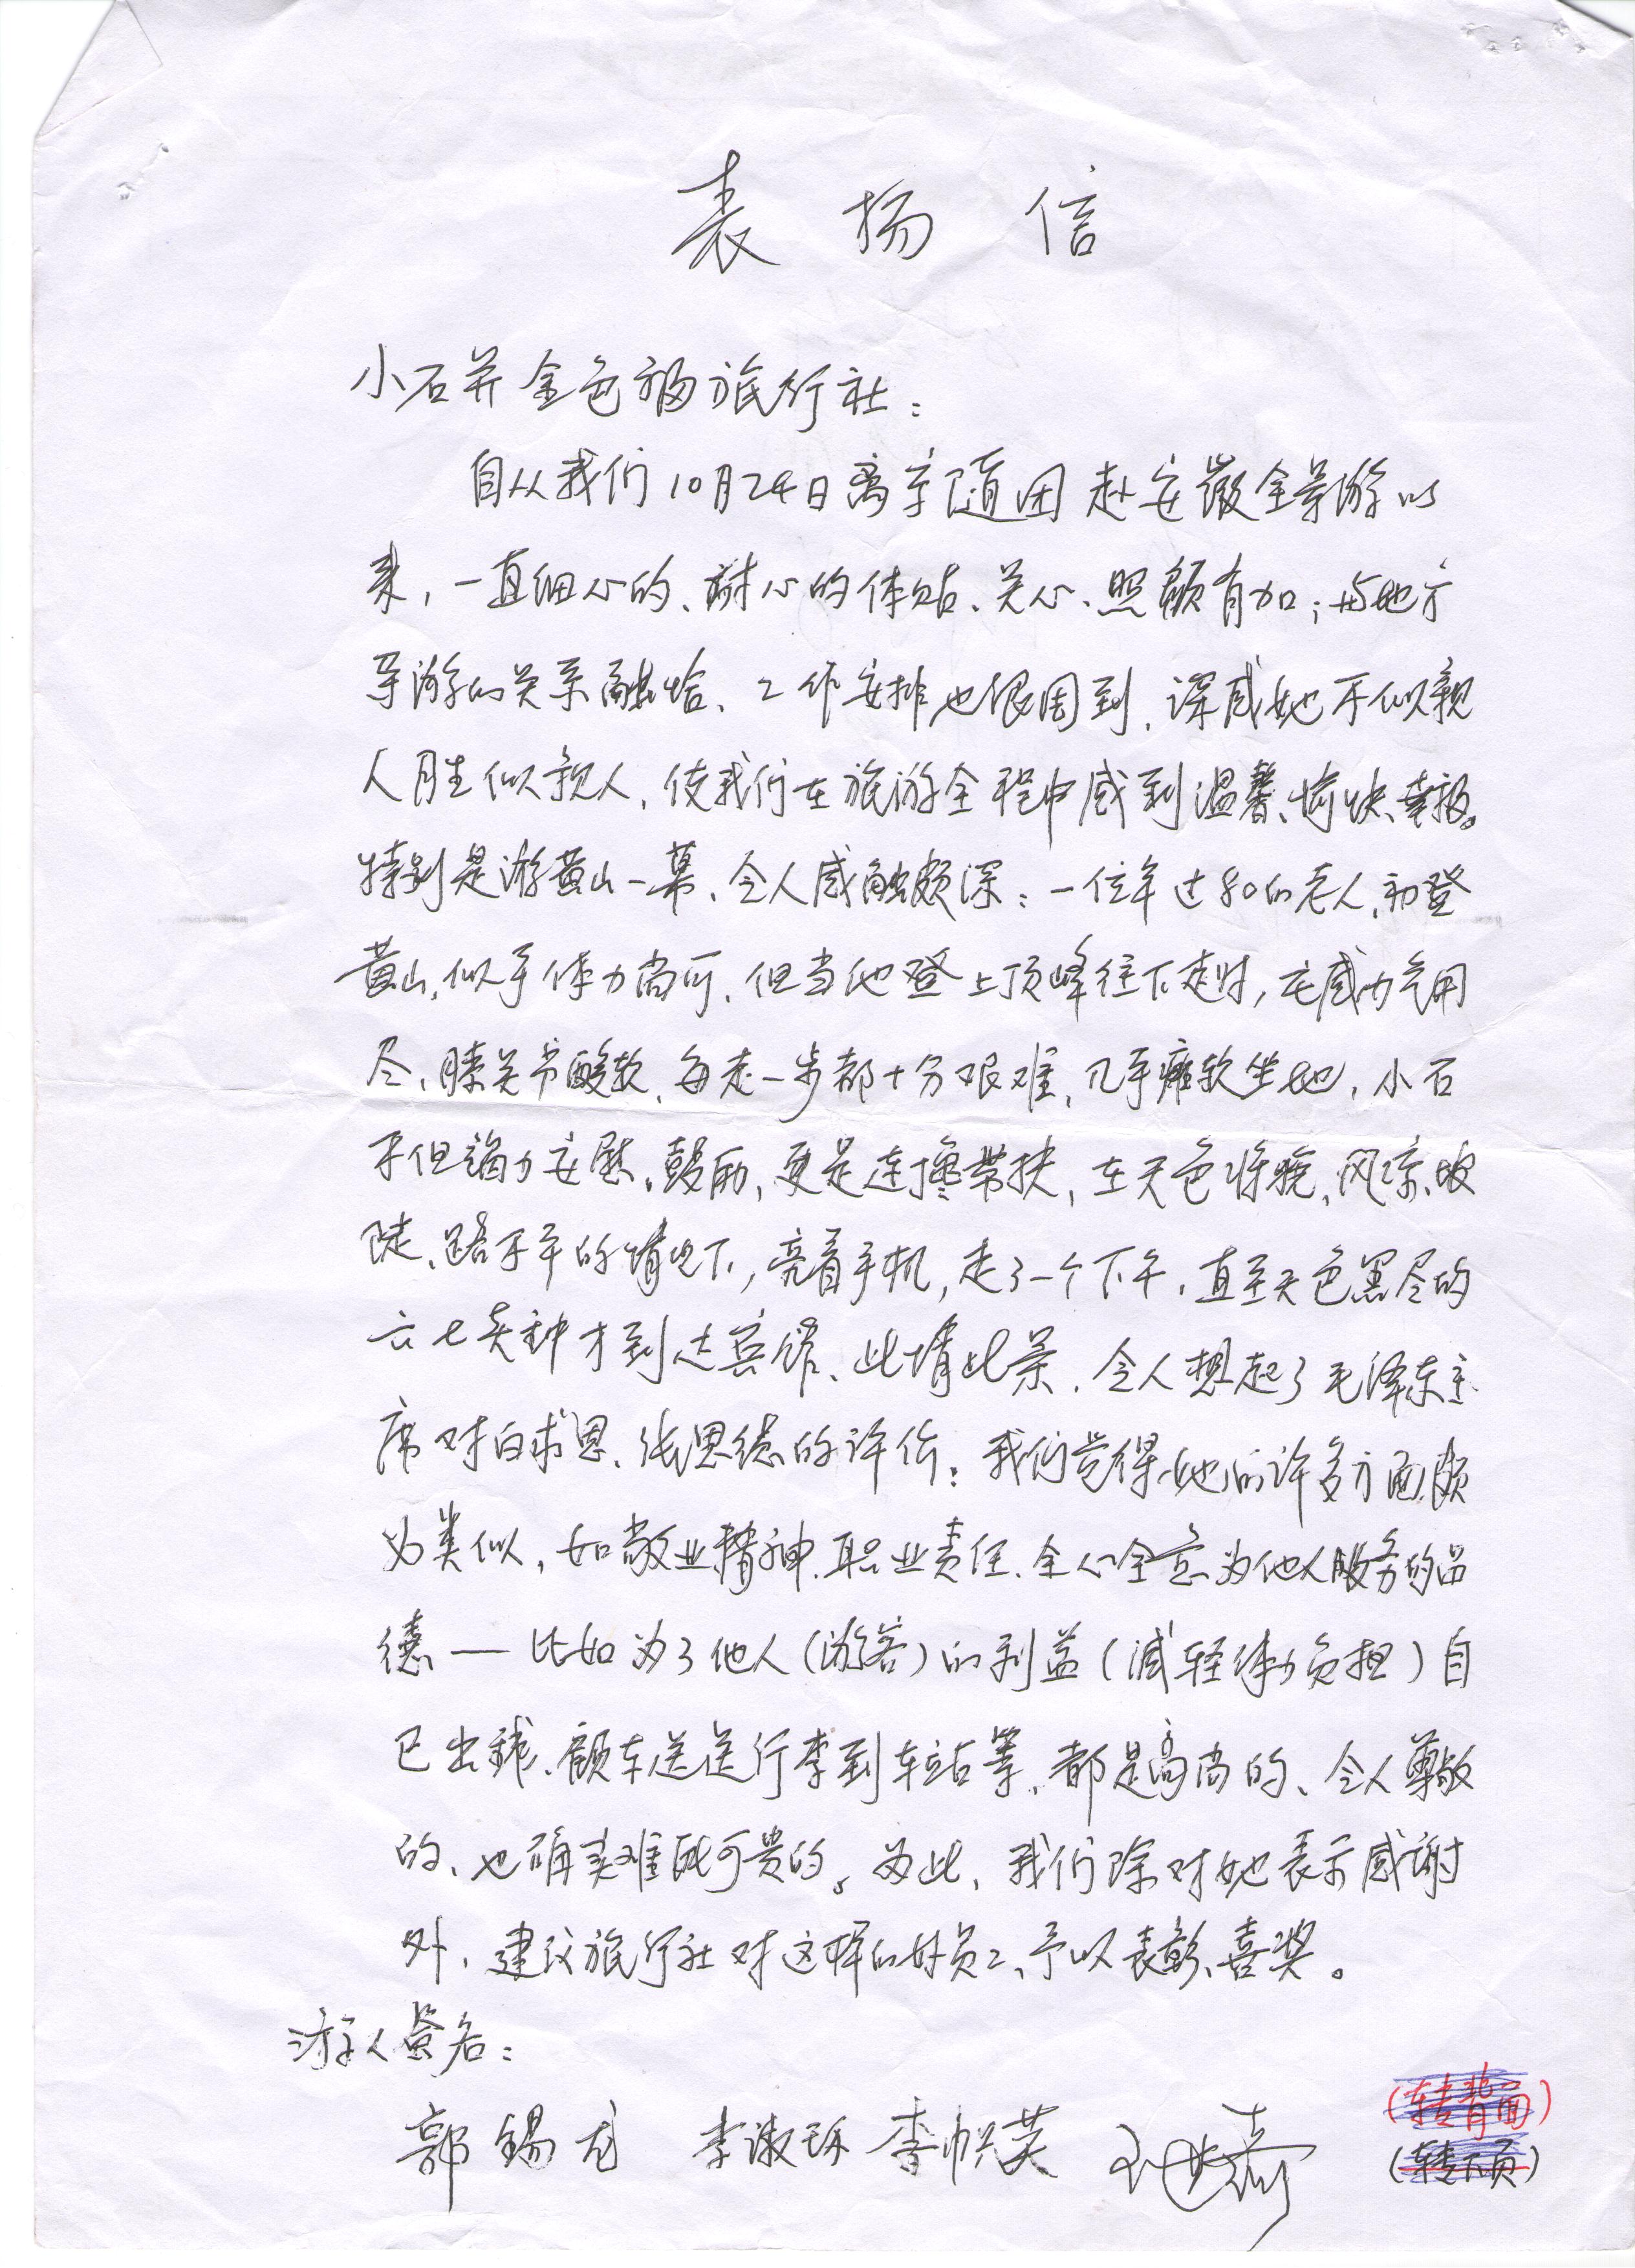 表扬信
小石并金色福旅行社：
自从我们10月24日离京随团赴安徽全景游以
来，一直细心的、耐心的体贴、关心、照顾有加；与地方
导游的关系融恰、工作安排也很周到，深感她不似亲
人胜似亲人，使我们在旅游全程中感到温馨、愉快、
特别是游黄山一幕、令人感触颇深：一位年过80的老人，初登
黄山，似乎体力尚可，但当他登上顶峰往下走时，尤感力气用
尽、膝关节酸软，每走一步都十分艰难，几乎瘫软坐地，小石
不但竭力安慰、鼓励，更是连搀带扶，在天色将晚、风凉、坡
陡、路不平的情况下，亮着手机，走了一个下午，直至天色黑尽的
六七点钟才到达宾馆、此情此景，令人想起了毛泽东主
席对白求恩、张思德的评价：我们觉得她的许多方面颇
为类似，如敬业精神、职业责任、全心全意为他人服务的品
德—比如为了他人（游客）的利益（减轻体力负担）自
己出钱、顾车送送行李到车站等，都是高尚的、令人尊敬
的、也确实难能可贵的。为此，我们除对她表示感谢
外，建议旅行社对这样的好员工、予以表彰、喜奖。
游人签名：
郭锡龙 李淑珍 李帜英
（转背面）
（转下页）